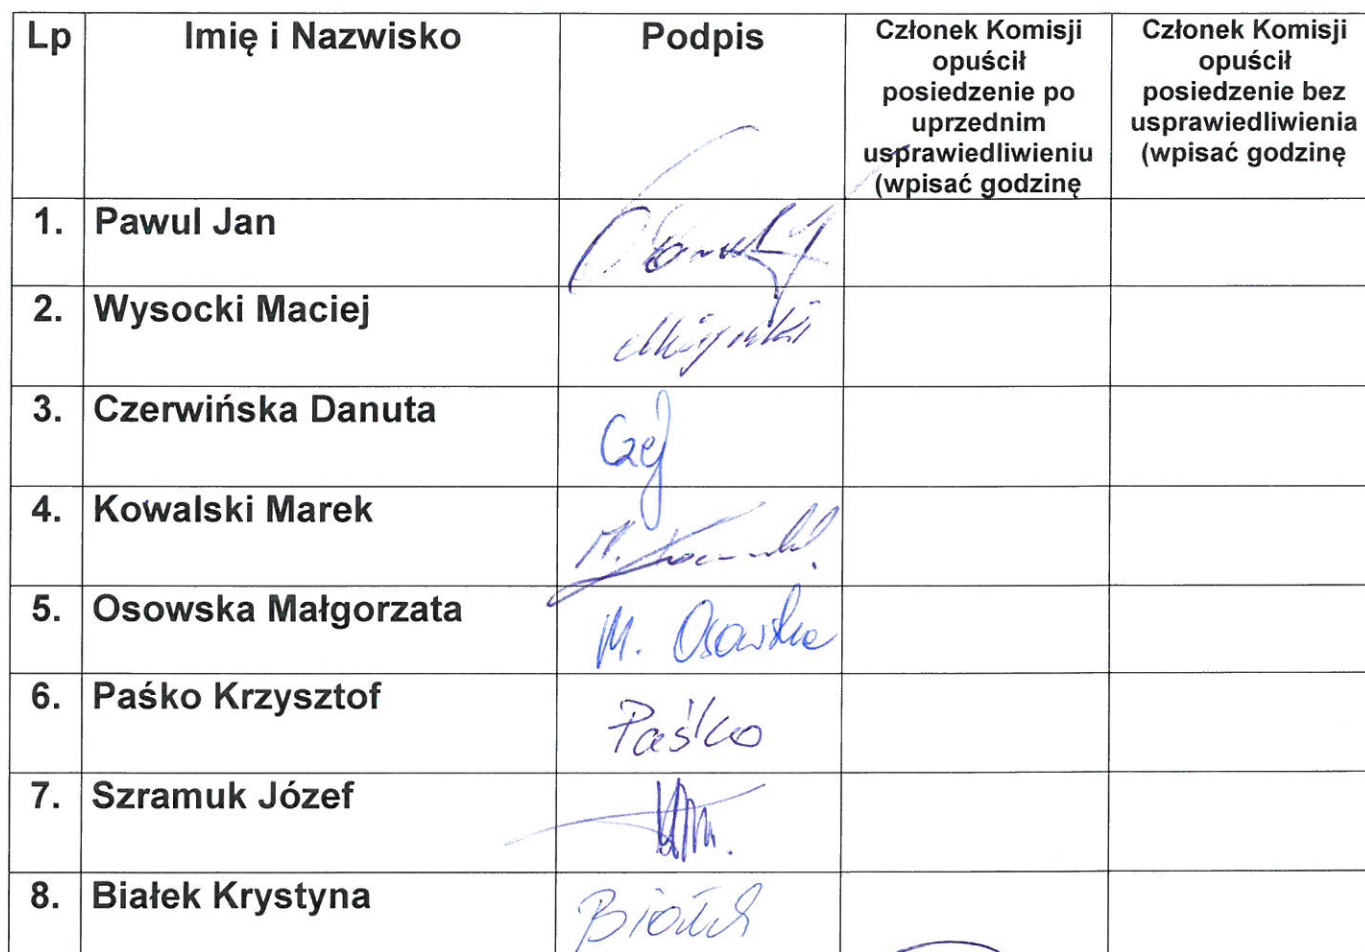 Lp Imię i Nazwisko Podpis Członek Komisji opuścił posiedzenie po uprzednim usprawiedliwieniu (wpisać godzinę Członek Komisji opuścił posiedzenie bez usprawiedliwienia (wpisać godzinę
1. Pawul Jan
2. Wysocki Maciej
3. Czerwińska Danuta
4. Kowalski Marek M.
5. Osowska Małgorzata M. Osowska
6. Paśko Krzysztof Paśko
7. Szramuk Józef
8. Białek Krystyna Białek